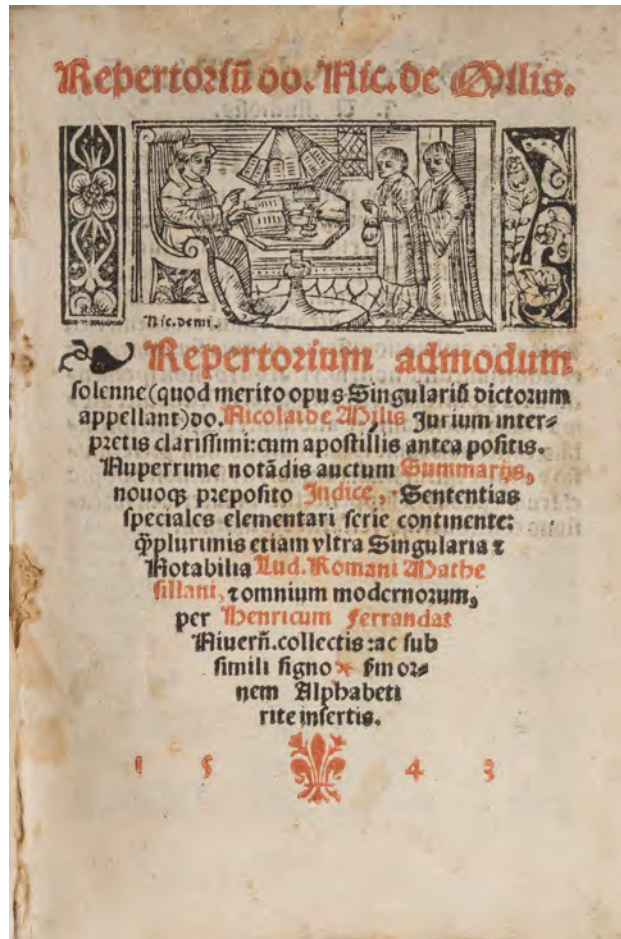 Repertoriũ do. Nic. de Milis.
Nic. de mi.
Repertorium admodum
solenne (quod merito opus Singulariũ dictorum
appellant) do. Nicolai de Milis Jurium inter⸗
pretis clarissimi: cum apostillis antea positis.
Nuperrime notãdis auctum Summarijs,
nouoqꝫ preposito Indice, Sententias
speciales elementari serie continente:
q̃plurimis etiam vltra Singularia ⁊
Notabilia Lud. Romani Mathe
sillani, ⁊ omnium modernorum,
per Henricum Ferrandat
Niuerñ. collectis: ac sub
simili signo ✠ s̃m or⸗
nem Alphabeti
rite insertis.
1 5 4 3